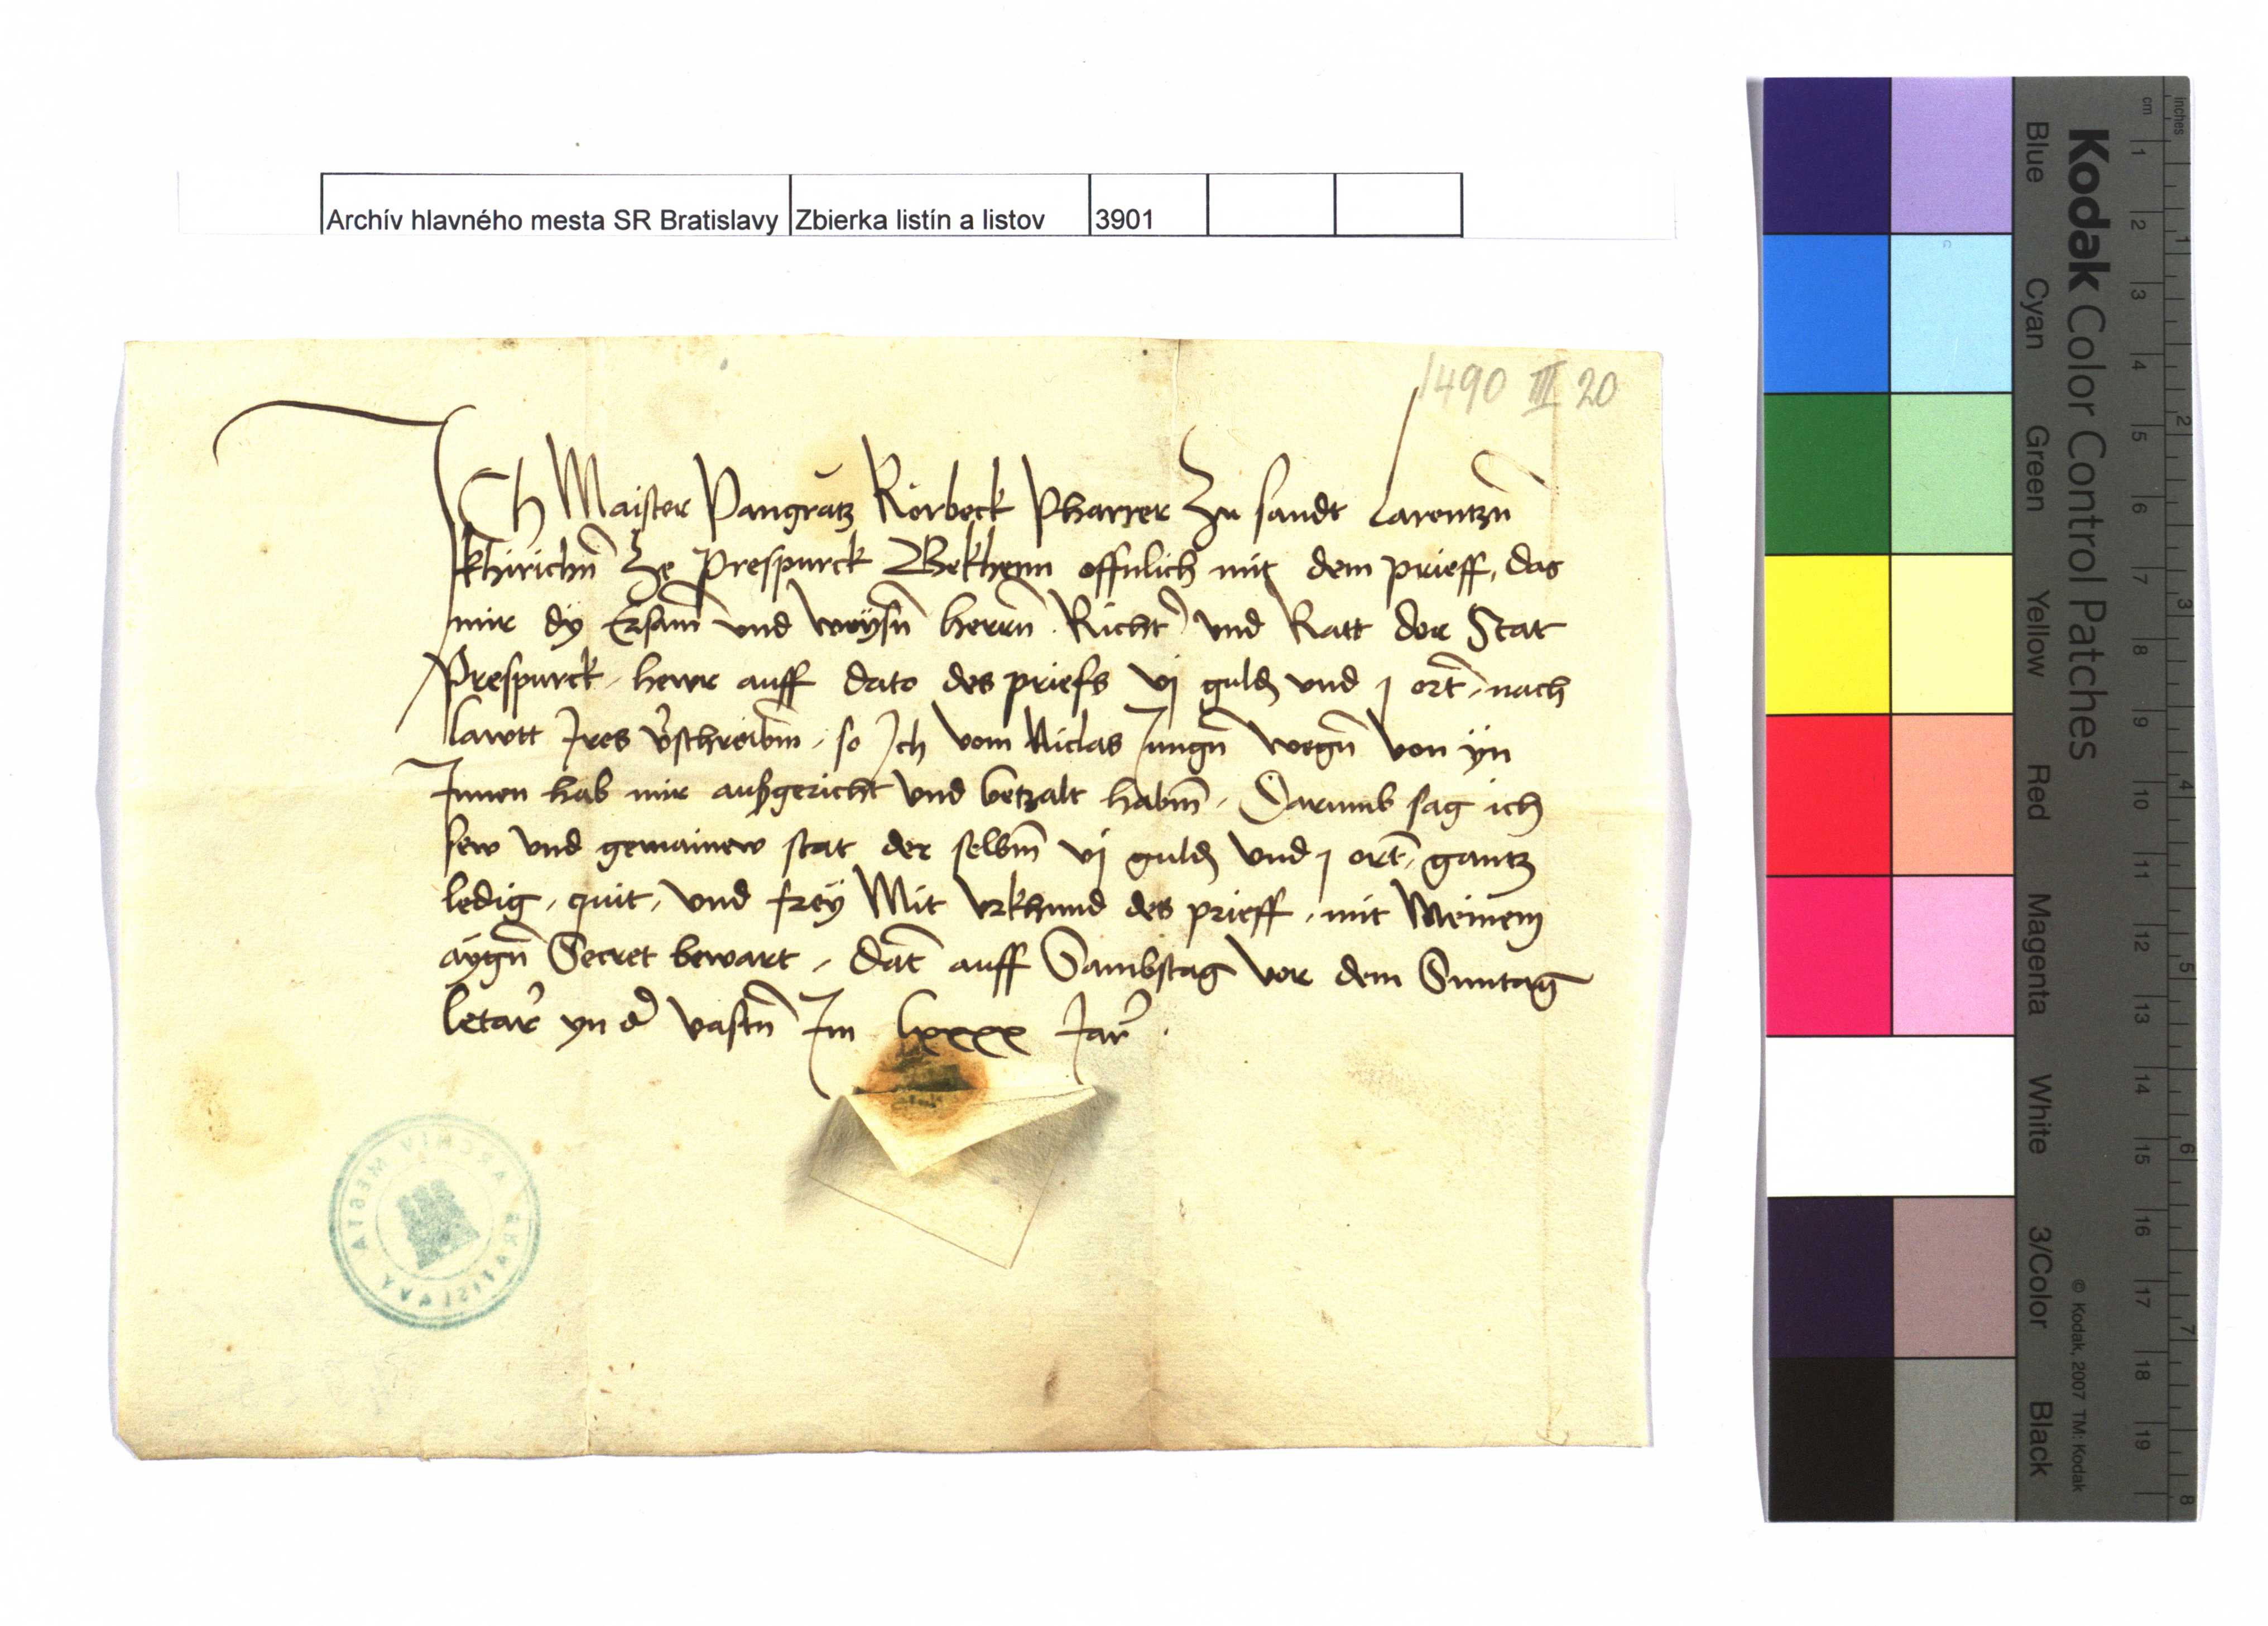 Archív hlavného mesta SR Bratislavy Zbierka listín a listov 3901
1490 III 20
Ich Maister Pangrätz Rorbeck Pharrer Zu sandt Larentzn̄
khirichn̄ Ze Prespurck Bekhenn offnlich mit dem prieff, das
mir dÿ Ersam̄ vnd weÿsn̄ herrn̄ Richt̄ vnd Ratt der Stat
Prespurck, hewr auff dato des priefs vj guld vnd j ort, nach
lawtt Ires v̄schreibm̄, so Ich vom Niclas Jungn̄ wegn̄ von ÿn
Innen hab mir außgericht vnd betzalt habm̄, Darumb sag ich
sew vnd gemainew stat der selbm̄ vj guld vnd j ort, gantz
ledig, quit, vnd freÿ Mit vrkhund des prieff, mit Meinem
aÿgn̄ Secret bewart, dat̄ auff Sambstag vor dem Suntag
letar̄ yn d̄ vastn̄ Im lxxxx Jar̄.
ARCHÍV MESTA BRATISLAVY
Kodak Color Control Patches
Blue Cyan Green Yellow Red Magenta White 3/Color Black
© Kodak, 2007 TM: Kodak
inches 1 2 3 4 5 6 7 8
cm 1 2 3 4 5 6 7 8 9 10 11 12 13 14 15 16 17 18 19